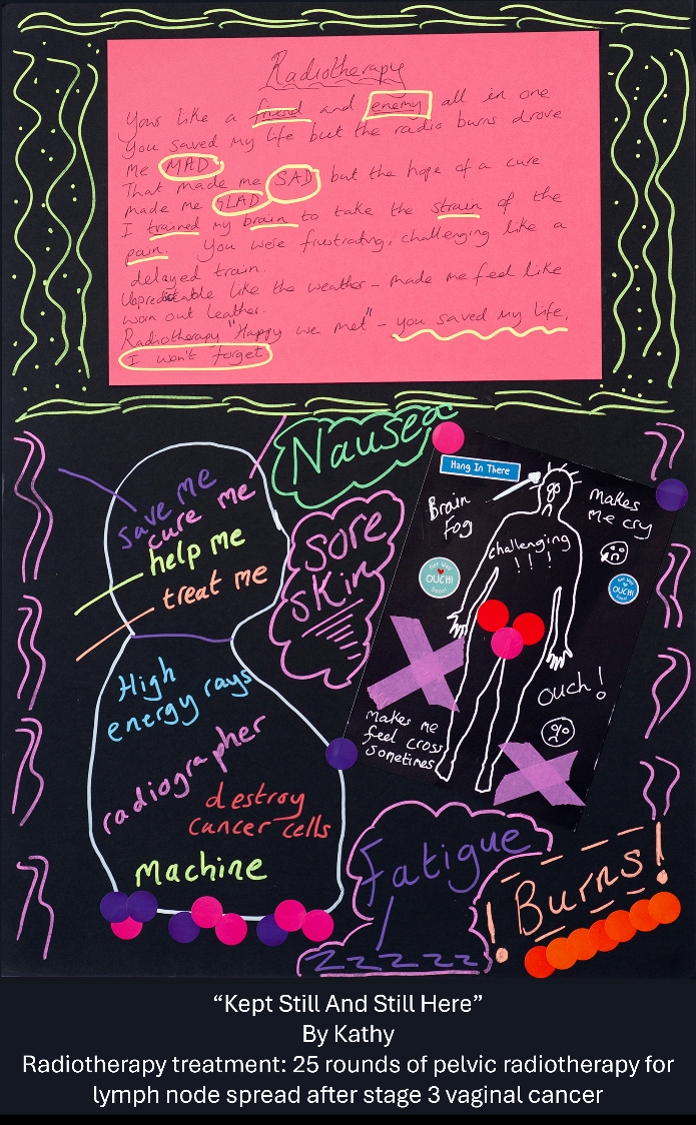 Radiotherapy
Your like a friend and enemy all in one
You saved my life but the radio burns drove
me MAD
That made me SAD but the hope of a cure
made me GLAD
I trained my brain to take the strain of the
pain. You were frustrating, challenging like a
delayed train.
like the weather - made me feel like
worn out leather.
Radiotherapy "Happy we met" - you saved my life,
I won't forget
Nausea
save me
cure me
help me
treat me
sore
skin
High
energy rays
radiographer
destroy
cancer cells
Machine
Hang In There
Brain
Fog
makes
me cry
challenging
! ! !
OUCH!
OUCH!
Ouch!
makes me
feel cross
sometimes
Fatigue
zzzzz
! Burns !
“Kept Still And Still Here”
By Kathy
Radiotherapy treatment: 25 rounds of pelvic radiotherapy for
lymph node spread after stage 3 vaginal cancer